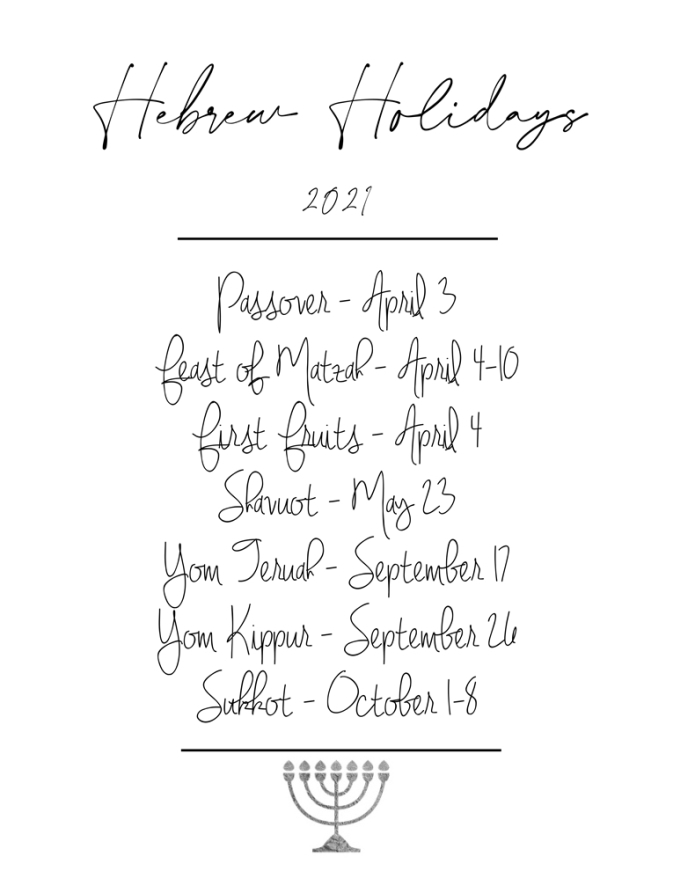 Hebrew Holidays
2021
Passover - April 3
Feast of Matzah - April 4-10
First Fruits - April 4
Shavuot - May 23
Yom Teruah - September 17
Yom Kippur - September 26
Sukkot - October 1-8